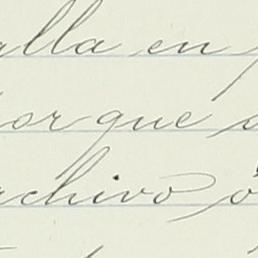 alla en
or que
rchivo ó